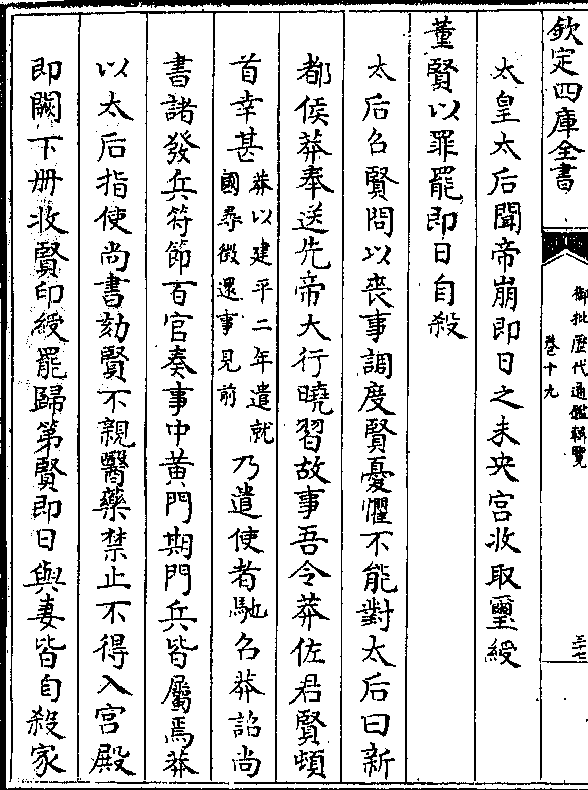 欽定四庫全書
御批歷代通鑑輯覽
卷十九
三七
太皇太后聞帝崩即日之未央宫收取璽綬
董賢以罪罷即日自殺
太后召賢問以喪事調度賢憂懼不能對太后曰新
都侯莽奉送先帝大行曉習故事吾令莽佐君賢頓
首幸甚
莽以建平二年遣就
國尋徵還事見前
乃遣使者馳召莽詔尚
書諸發兵符節百官奏事中黄門期門兵皆屬焉莽
以太后指使尚書劾賢不親醫藥禁止不得入宫殿
即闕下册收賢印綬罷歸第賢即日與妻皆自殺家